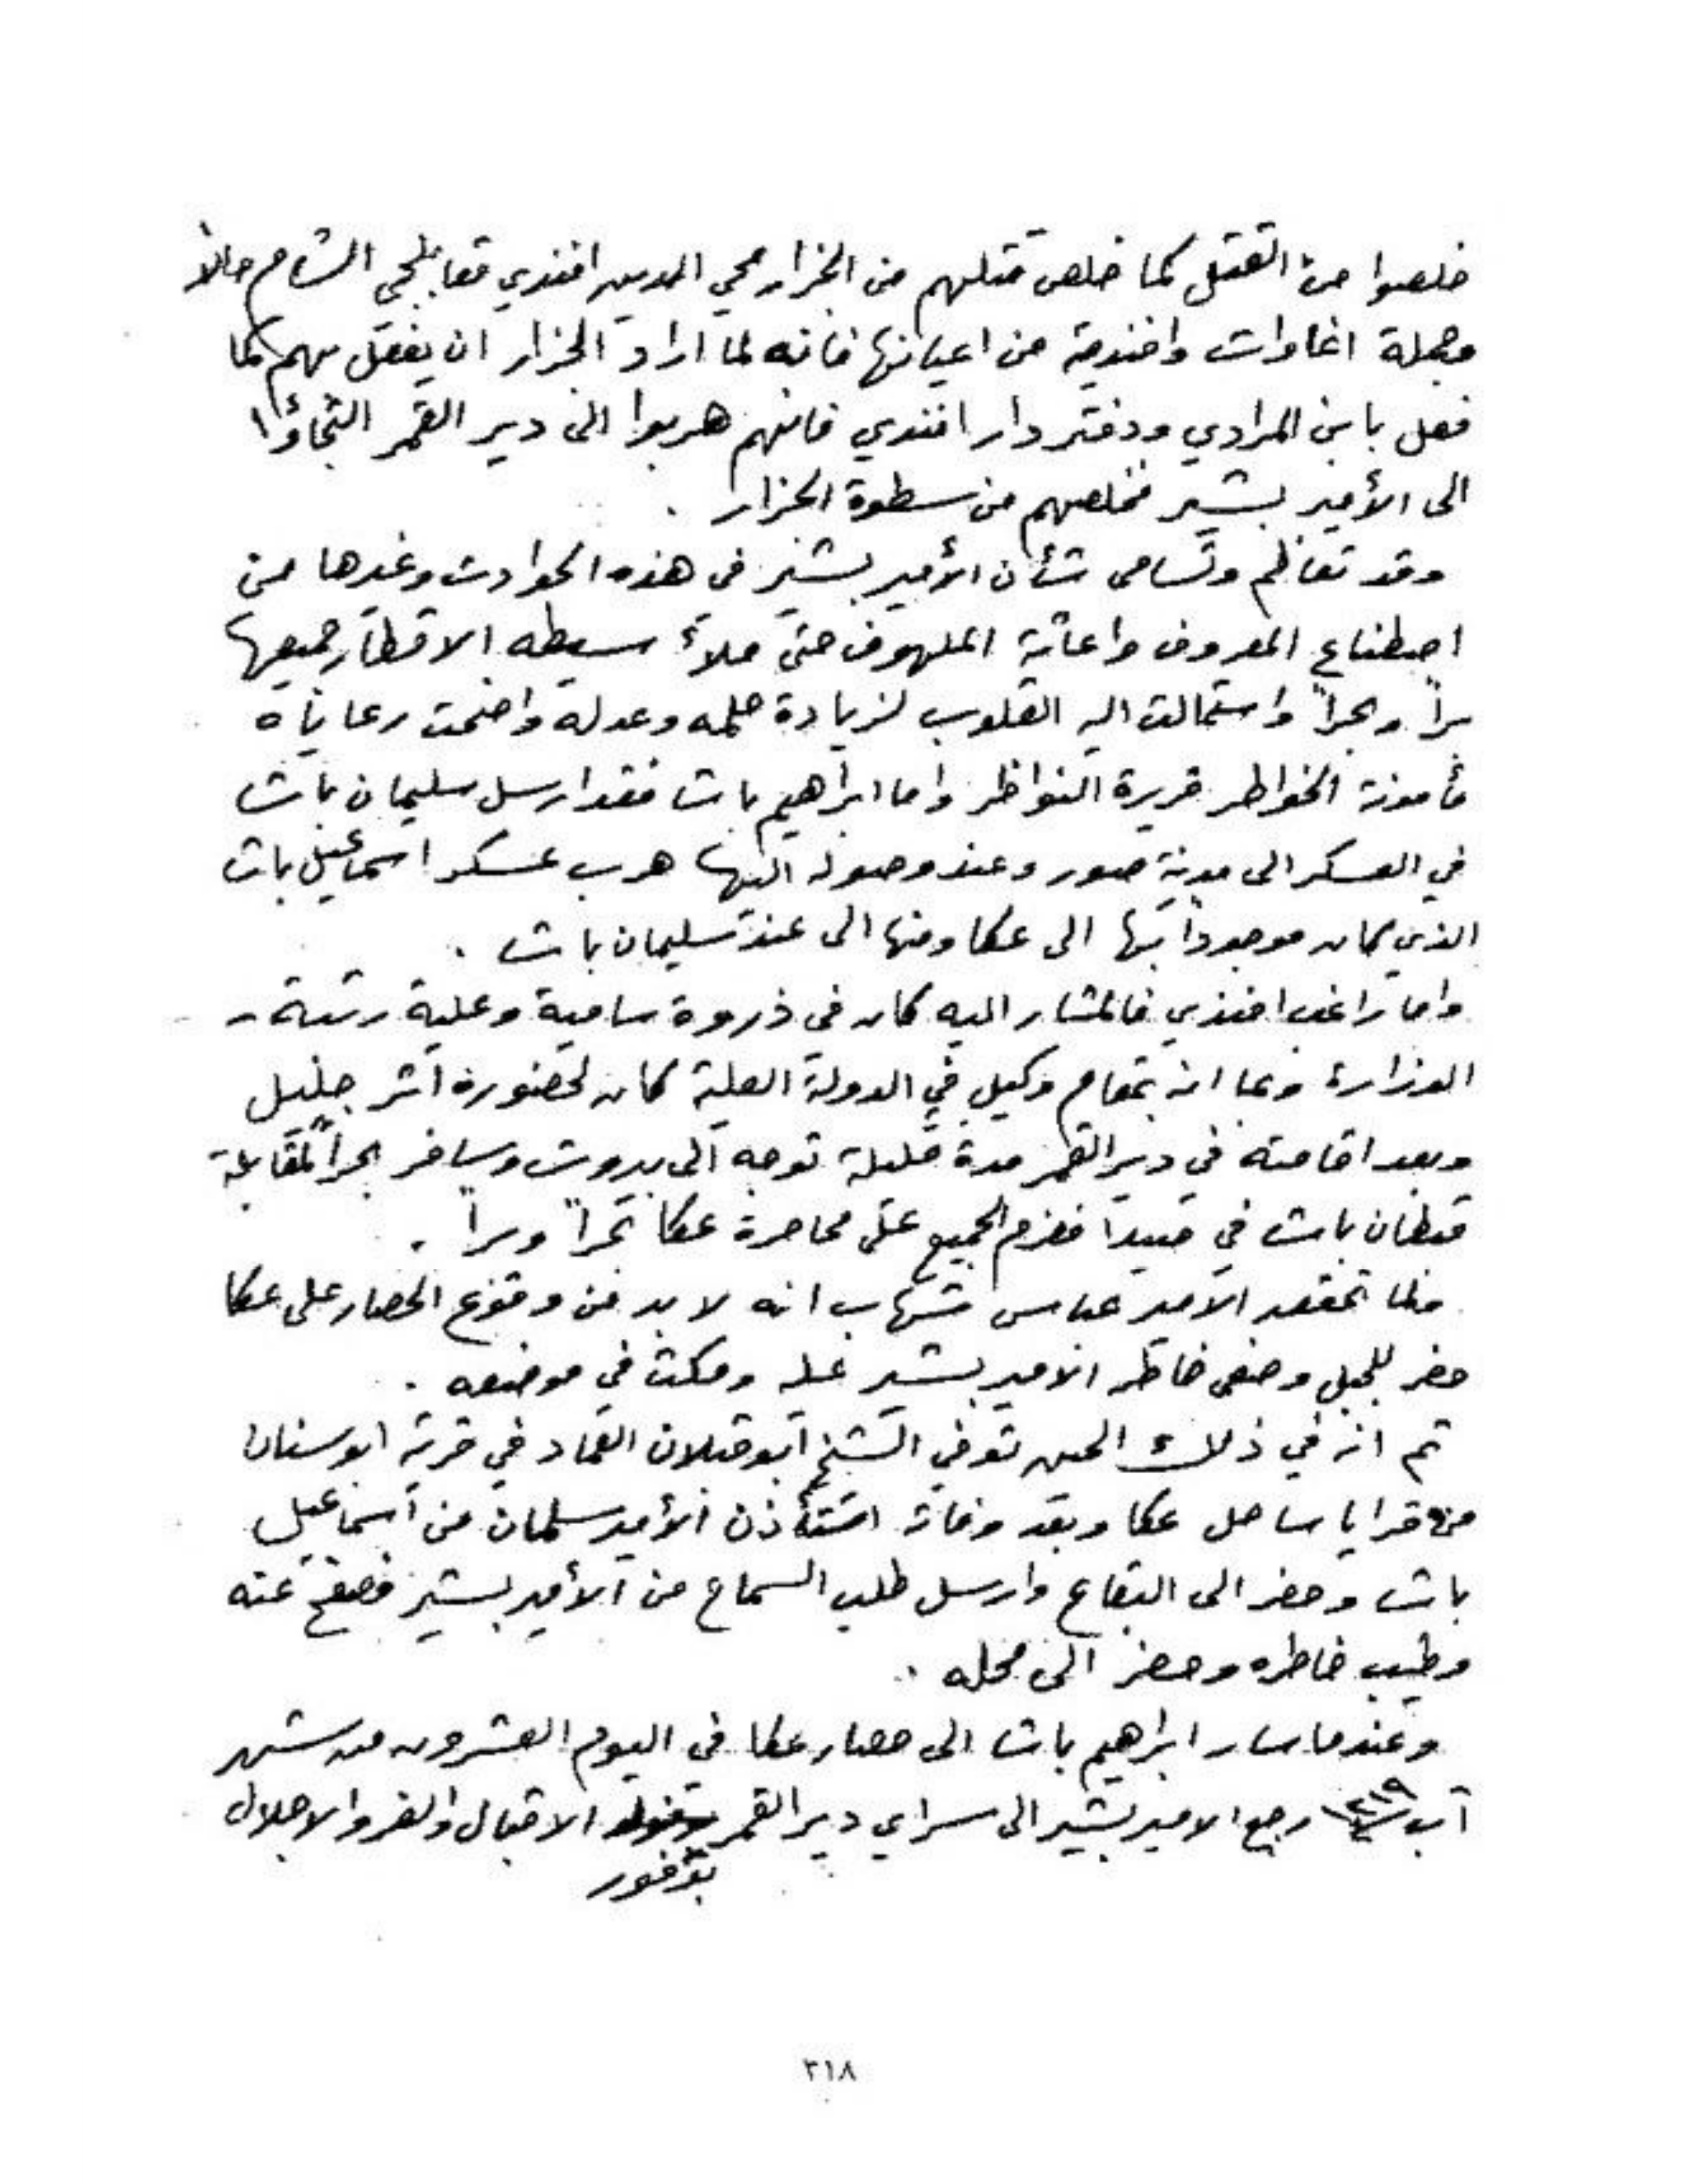 خلصوا من القتل كما خلص قتلهم من الجزار محي الدين افندي مقابلجي الشام حالاً
وجملة اغاوات وافندية من اعيانها فانه لما اراد الجزار ان يفعل بهم كما
فعل بابن المرادي ودفتردار افندي فانهم هربوا الى دير القمر التجاؤا
الى الأمير بشير فخلصهم من سطوة الجزار .
وقد تعاظم وتسامى شأن الأمير بشير في هذه الحوادث وغيرها من
اصطناع المعروف واغاثة الملهوف حتى ملأ سيطه الاقطار جميعها
براً وبحراً واستمالت اليه القلوب لزيادة حلمه وعدله واضحت رعاياه
مأمونة الخواطر قريرة النواظر واما ابراهيم باشا فقد ارسل سليمان باشا
في العسكر الى مدينة صور وعند وصوله اليها هرب عسكر اسماعيل باشا
الذي كان موجوداً بها الى عكا ومنها الى عند سليمان باشا .
واما راغب افندي فالمشار اليه كان في ذروة سامية وعلية رتبة
الوزارة وبما انه بمقام وكيل في الدولة العلية كان لحضوره اثر جليل
وبعد اقامته في دير القمر مدة قليلة توجه الى بيروت وسافر بحراً لمقابلة
قبطان باشا في صيدا فعزم الجميع على محاصرة عكا بحراً وبراً .
فلما تحقق الامير عباس شهاب انه لا بد من وقوع الحصار على عكا
حضر للجبل وصفى خاطر الامير بشير عليه ومكث في موضعه .
ثم انه في ذلك الحين توفي الشيخ ابو قبلان العماد في قرية ابوسنان
من قرايا ساحل عكا وبعد وفاته استأذن الأمير سلمان من اسماعيل
باشا وحضر الى البقاع وارسل طلب السماح من الأمير بشير فصفح عنه
وطيب خاطره وحضر الى محله .
وعندما سار ابراهيم باشا الى حصار عكا في اليوم العشرون من شهر
آب ١٢١٩ رجع الامير بشير الى سراي دير القمر الاقبال والعز والاجلال
بوفور
٣١٨